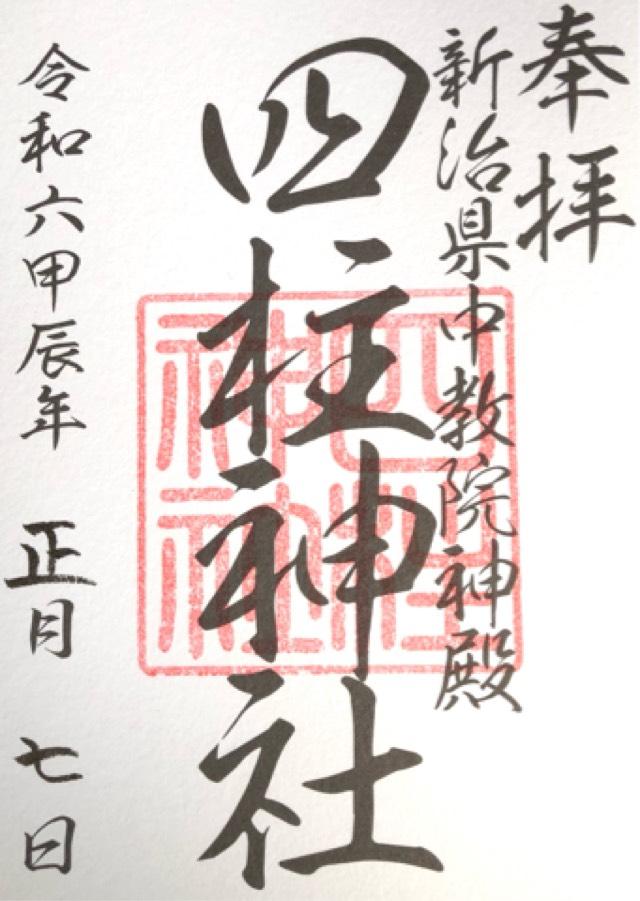 奉拝
新治県中教院神殿
四柱神社
四柱神社
令和六甲辰年 正月 七日